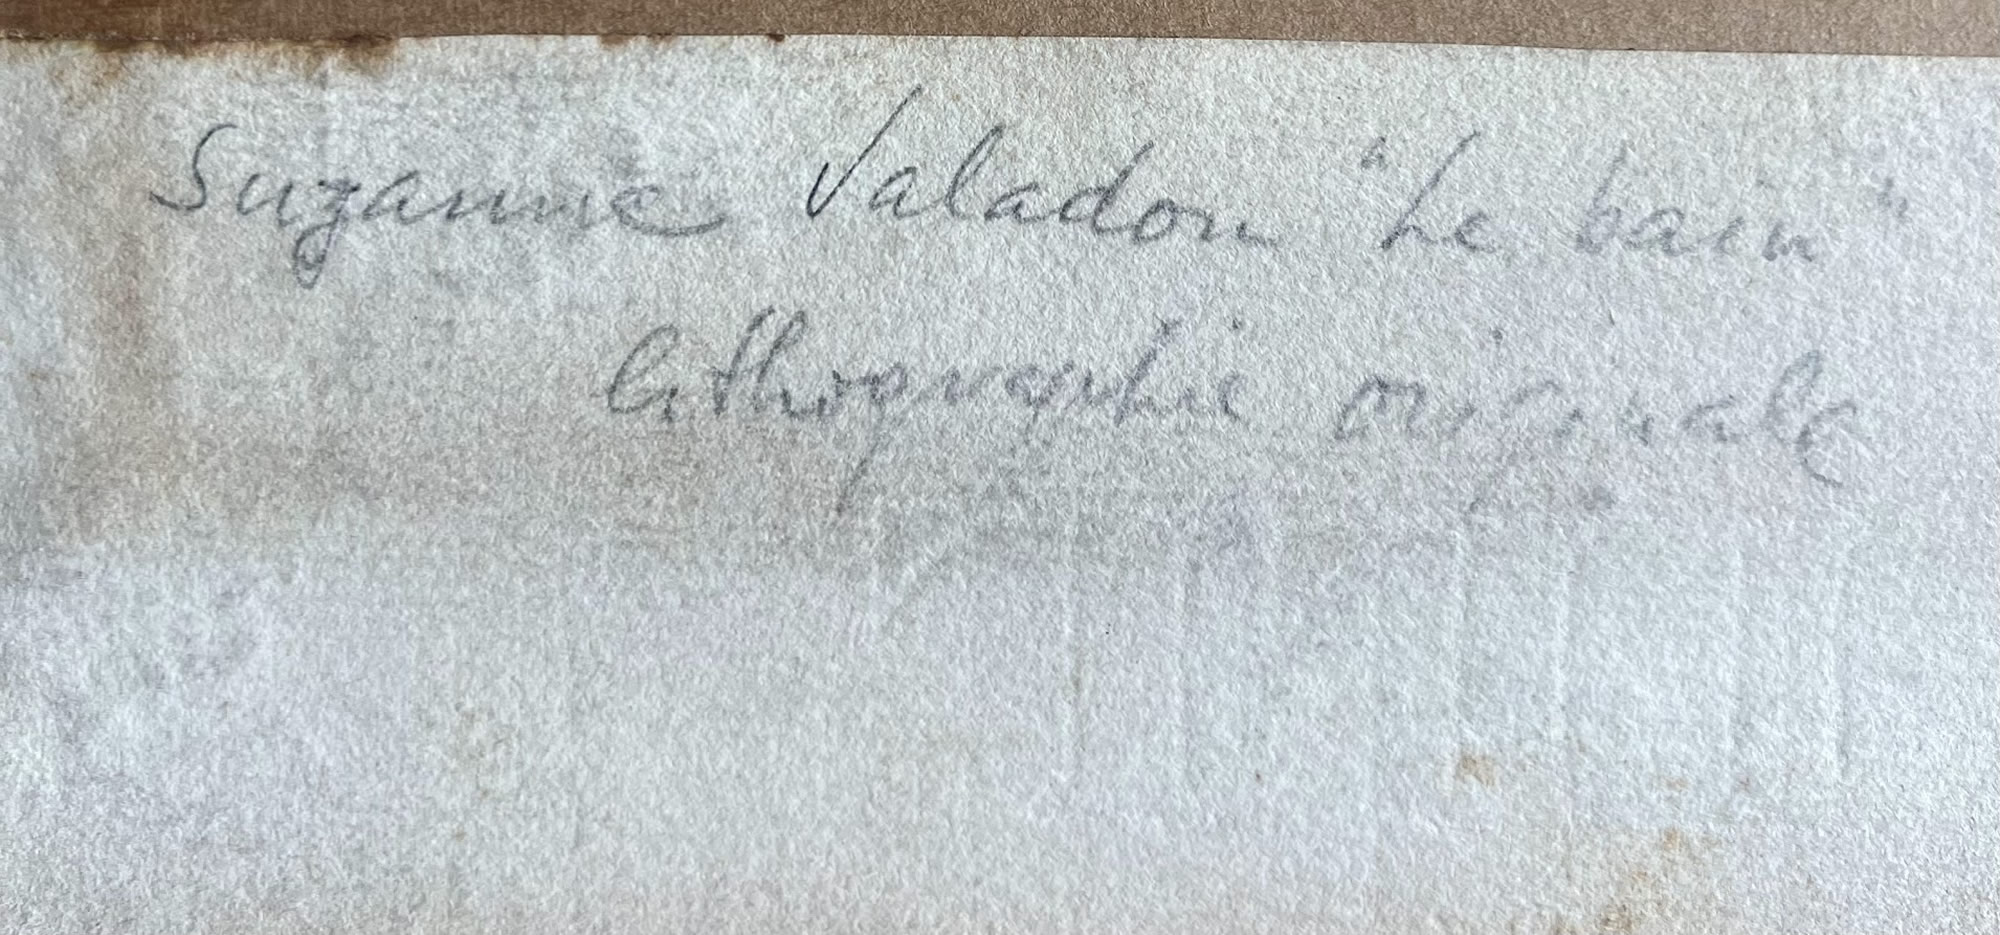 Suzanne Valadon "Le bain"
lithographie originale